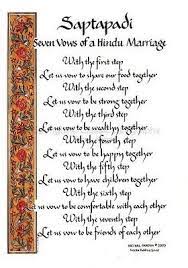 Saptapadi
Seven Vows of a Hindu Marriage
With the first step
Let us vow to share our food together
With the second step
Let us vow to be strong together
With the third step
Let us vow to be wealthy together
With the fourth step
Let us vow to be happy together
With the fifth step
Let us vow to have children together
With the sixth step
Let us vow to be comfortable with each other
With the seventh step
Let us vow to be friends of each other